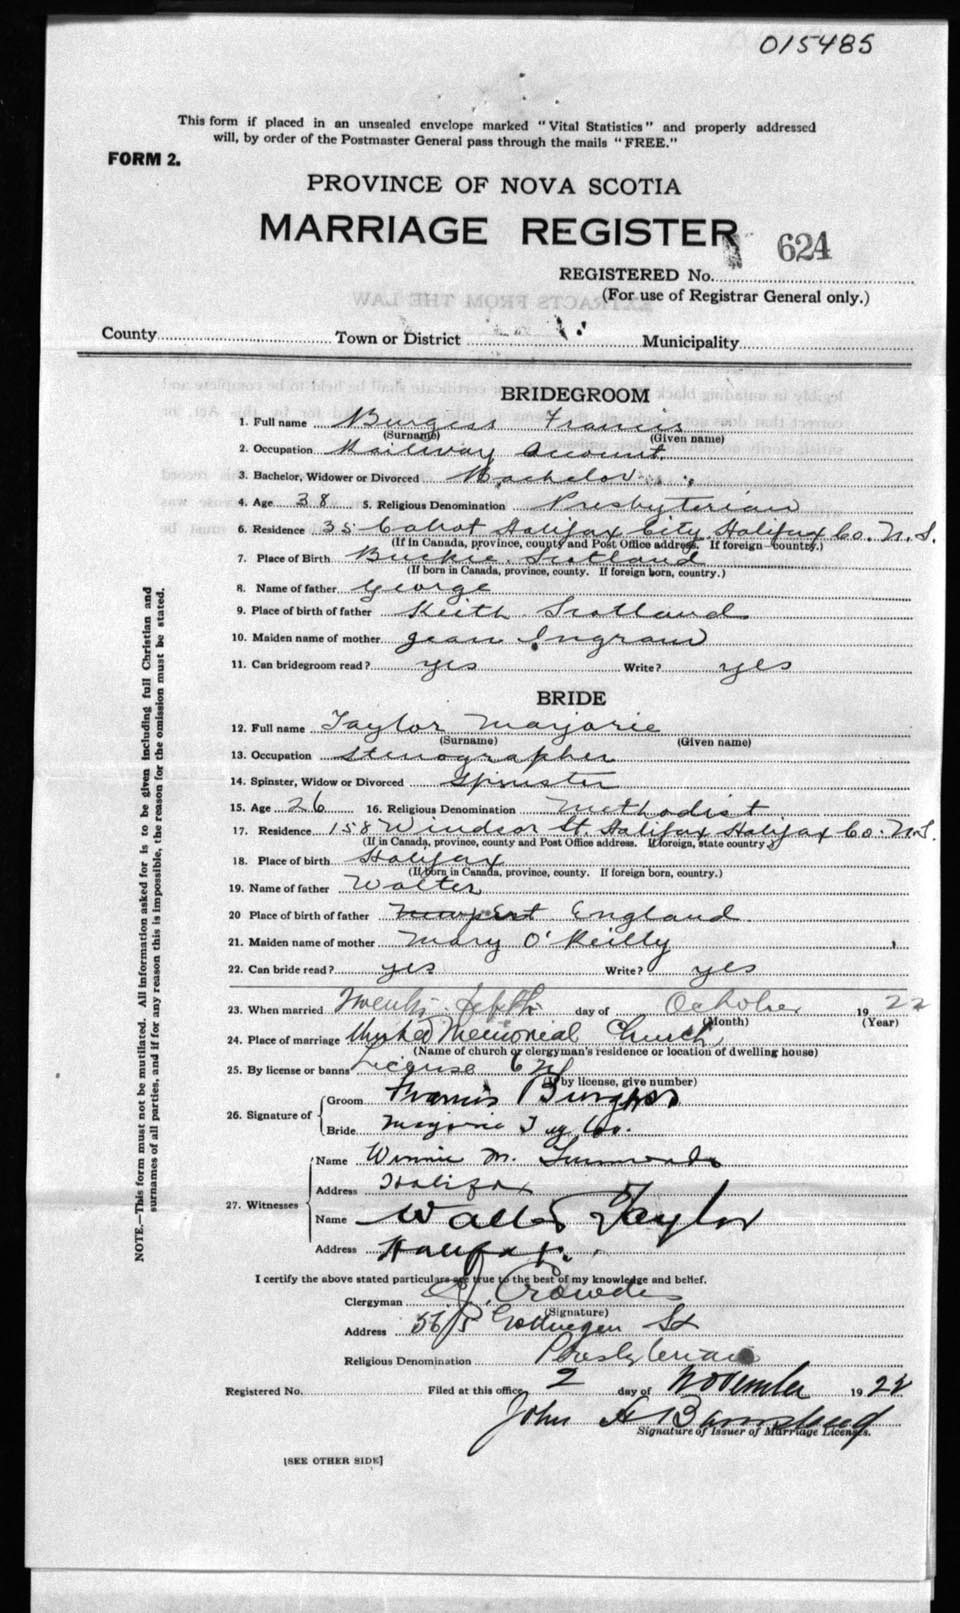 015485
This form if placed in an unsealed envelope marked "Vital Statistics" and properly addressed
will, by order of the Postmaster General pass through the mails "FREE."
FORM 2.
PROVINCE OF NOVA SCOTIA
MARRIAGE REGISTER
624
REGISTERED No.
(For use of Registrar General only.)
County Town or District Municipality
BRIDEGROOM
1. Full name Burgess Francis
(Surname) (Given name)
2. Occupation Railway Account.
3. Bachelor, Widower or Divorced Bachelor
4. Age 38 5. Religious Denomination Presbyterian
6. Residence 35 Cabot Halifax City Halifax Co. N.S.
(If in Canada, province, county and Post Office address. If foreign country.)
7. Place of Birth Buckie Scotland
(If born in Canada, province, county. If foreign born, country.)
8. Name of father George
9. Place of birth of father Keith Scotland
10. Maiden name of mother Jean Ingram
11. Can bridegroom read? yes Write? yes
BRIDE
12. Full name Taylor Marjorie
(Surname) (Given name)
13. Occupation Stenographer
14. Spinster, Widow or Divorced Spinster
15. Age 26 16. Religious Denomination Methodist
17. Residence 158 Windsor St. Halifax Halifax Co. N.S.
(If in Canada, province, county and Post Office address. If foreign, state country.)
18. Place of birth Halifax
(If born in Canada, province, county. If foreign born, country.)
19. Name of father Walter
20 Place of birth of father England
21. Maiden name of mother Mary O'Reilly
22. Can bride read? yes Write? yes
23. When married Twenty day of October 1922
(Month) (Year)
24. Place of marriage Memorial Church
(Name of church or clergyman's residence or location of dwelling house)
25. By license or banns License
(If by license, give number)
26. Signature of
Groom Francis Burgess
Bride Marjorie Taylor.
27. Witnesses
Name Winnie M.
Address Halifax
Name Walter Taylor
Address Halifax.
I certify the above stated particulars are true to the best of my knowledge and belief.
Clergyman
(Signature)
Address Gottingen St
Religious Denomination Presbyterian
Registered No. Filed at this office 2 day of November 1922
John A
Signature of Issuer of Marriage Licenses.
[SEE OTHER SIDE]
NOTE.—This form must not be mutilated. All information asked for is to be given including full Christian and
surnames of all parties, and if for any reason this is impossible, the reason for the omission must be stated.